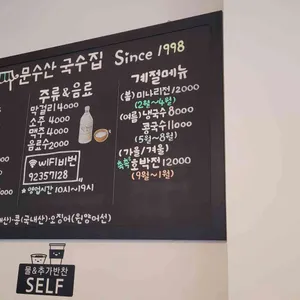 문수산 국수집 Since 1998
주류&음료
막걸리 4000
소주 4000
맥주 4000
음료수 2000
WiFi비번
92357128
*영업시간 10시~19시
계절메뉴
(봄) 미나리전 12000
(2월~4월)
(여름) 냉국수 8000
콩국수 11000
(5월~8월)
(가을/겨울)
호박전 12000
(9월~1월)
산)·콩(국내산)·오징어(원양어선)
물&추가반찬
SELF